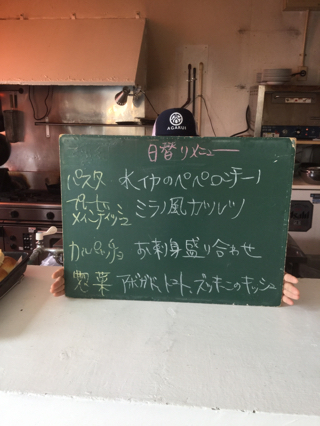 AGARUI
日替りメニュー
パスタ 水イカのペペロンチーノ
メインディッシュ ミラノ風カツレツ
カルパッチョ お刺身盛り合わせ
惣菜 アボガド、トマト、ズッキーニのキッシュ